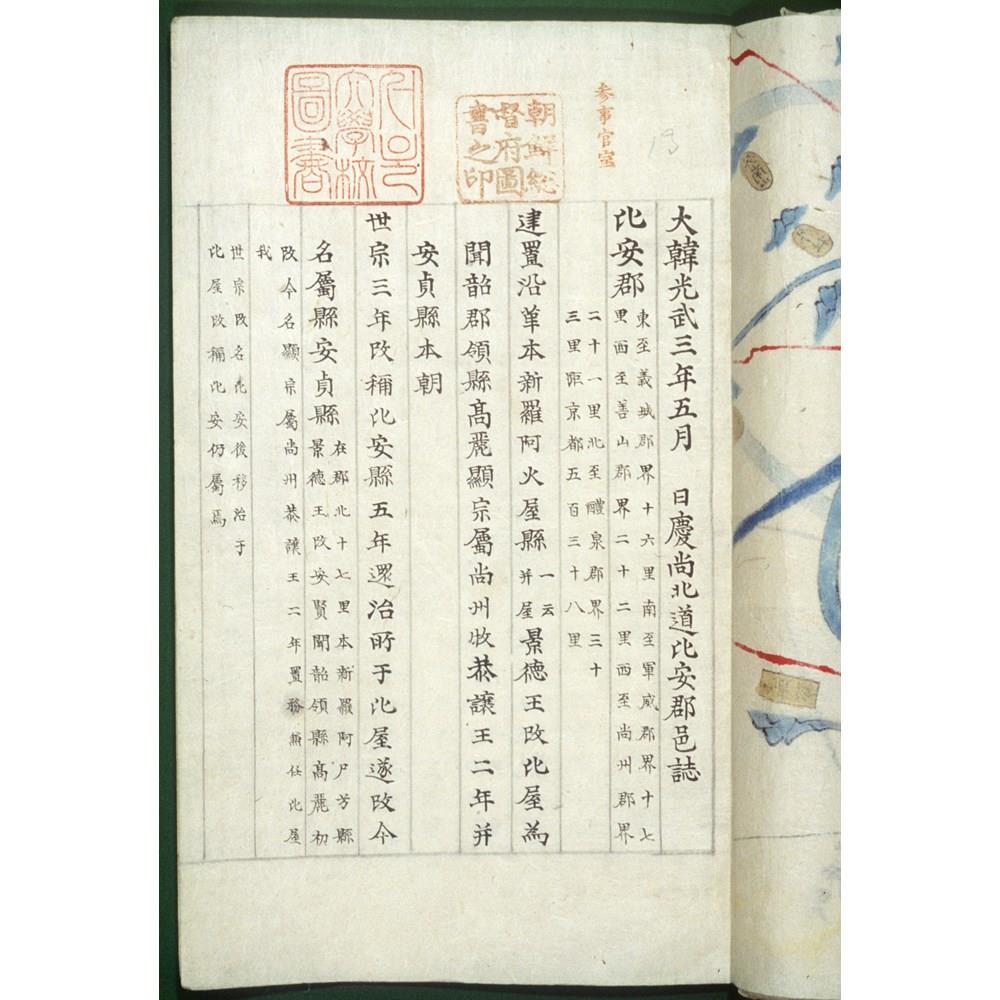 大韓光武三年五月 日慶尚北道比安郡邑誌
比安郡
東至義城郡界十六里南至軍威郡界十七
里西至善山郡界二十二里西至尚州郡界
二十一里北至醴泉郡界三十
三里距京都五百三十八里
建置沿革本新羅阿火屋縣
一云
并屋
景德王改比屋為
聞韶郡領縣高麗顯宗屬尚州牧恭讓王二年并
安貞縣本朝
世宗三年改稱比安縣五年還治所于比屋遂改今
名屬縣安貞縣
在郡北十七里本新羅阿尸芳縣
景德王改安賢聞韶領縣高麗初
改今名顯宗屬尚州恭讓王二年置務兼任比屋
我
世宗改名比安後移治于
比屋改稱比安仍屬焉
参事官室
朝鮮総
督府圖
書之印
大學校
圖書
19